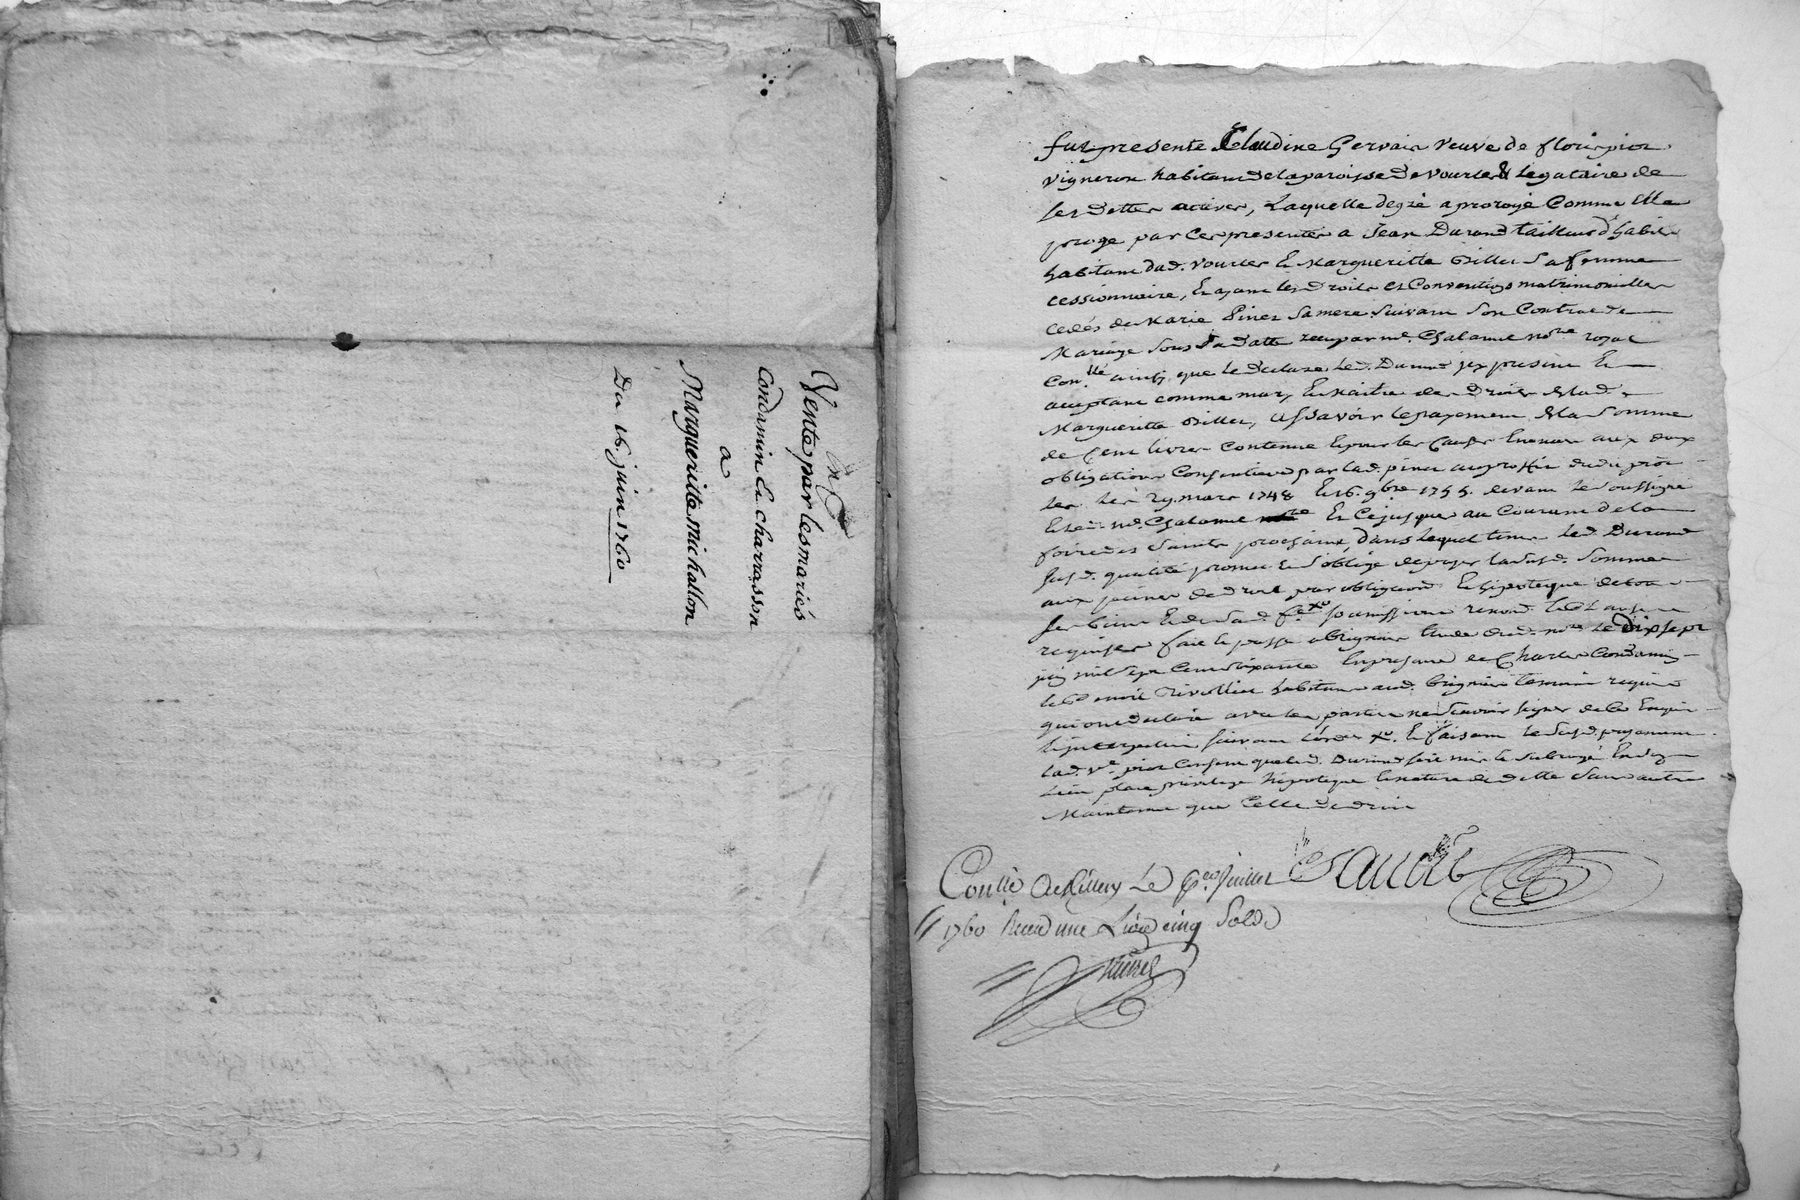 en G
Vente par les mariés
Condamin et charrasson
a
Margueritte michallon
Du 16 juin 1760
fut presente Claudine Gervais veuve de floris piot
vigneron habitant de la paroisse de vourles & legataire de
ses dettes actives, Laquelle de gré a prorogé comme elle
proge par ces presentes a Jean Durand tailleur d'habits
habitant dud. vourles et Margueritte sa femme
cessionnaire, et ayant les droits et conventions matrimonialles
cedés de Marie Pinet sa mere suivant son contrat de
Mariage sous sa datte reçu par me. Chalamel nore royal
ainsy que le declare led. Durand icy present et
acceptant comme mary et maitre des droits de lad.
Margueritte assavoir le payement de la somme
de cent livres contenue et pour les causes enoncées aux deux
obligations consenties par lad. pinet au proffit dudit piot
les 29. mars 1748 et 16. 9bre 1755. devant le soussigné
et led. me. Chalamel nore et ce jusque au courant de la
foire des saints prochains, dans lequel tems led. Durand
susd. qualité promet et s'oblige de payer lad. somme
aux peines de droit par obligation et hipoteque de tous
ses biens et de sad. fe. xa soumissions renond. et clauses
requises fait et passé a brignais etude dud. nore le Dix sept
juin mil sept cent soixante en presence de Charles Condamin
et Benoit habitans aud. brignais temoins requis
qui ont declaré avec les parties ne scavoir signer de ce enquis
suivant l'ordce xa. et faisant le susd. payement
lad. ve. piot consent que led. Durand soit mis et subrogé en son
lieu place privilege hipoteque et nature de dette sans autre
Maintenue que celle de droit
Conllé a le 6eme juillet
1760 Recu une Livre cinq Sols